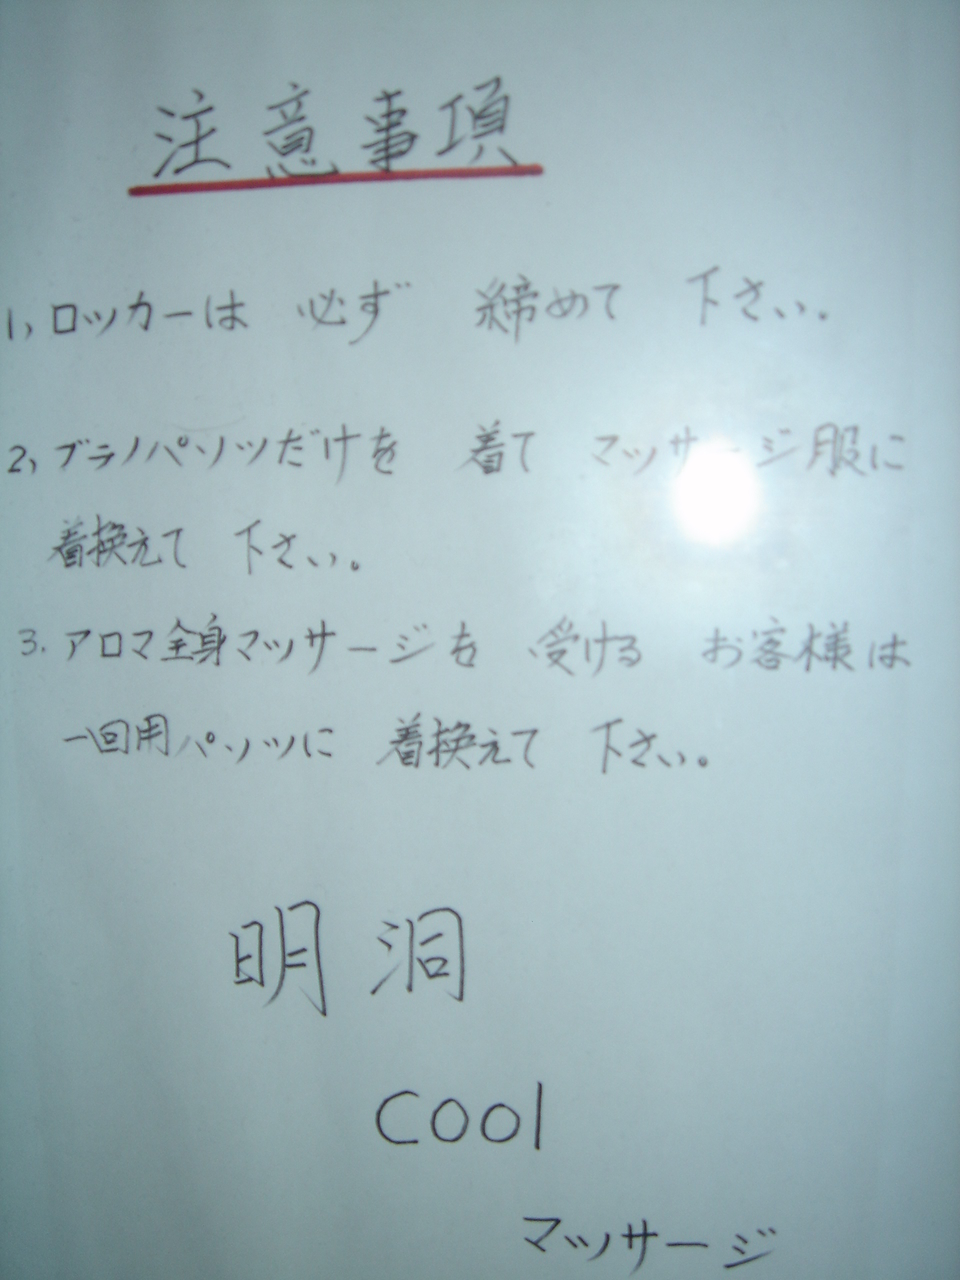 注意事項
1, ロッカーは 必ず 締めて 下さい.
2, ブラノパソツだけを 着て マッサージ服に
着換えて 下さい。
3. アロマ全身マッサージを 受ける お客様は
一回用パソツに 着換えて 下さい。
明洞
COOl
マッサージ